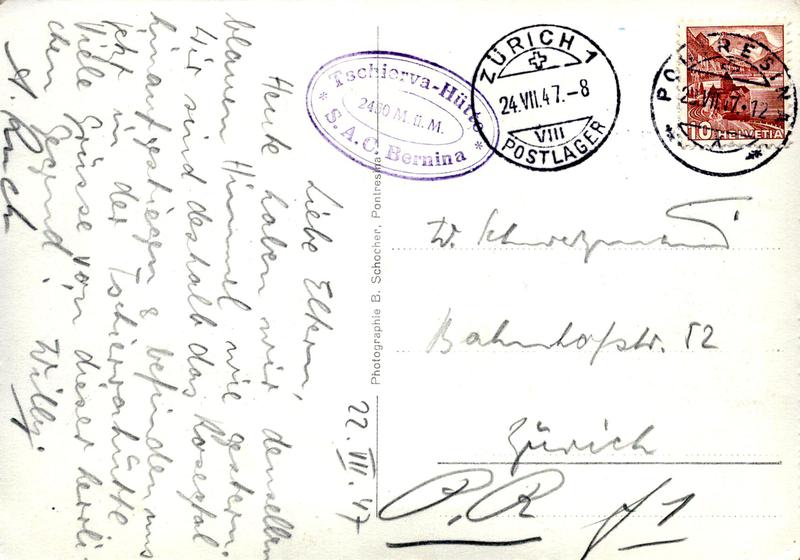 22. VII. 47
Liebe Eltern,
Heute haben wir denselben
blauen Himmel wie gestern.
Wir sind deshalb das Rosegtal
hinaufgestiegen & befinden uns
jetzt in der Tschiervahütte.
Viele Grüsse von dieser herrli-
chen Gegend! Willy.
Tschierva-Hütte
2450 M. ü. M.
* S. A. C. Bernina *
ZÜRICH 1
24.VII.47.-8
VIII
POSTLAGER
PONTRESINA
VII.47.12
10 HELVETIA
Photographie B. Schocher, Pontresina
W.
Bahnhofstr. 52
Zürich
P.R f1